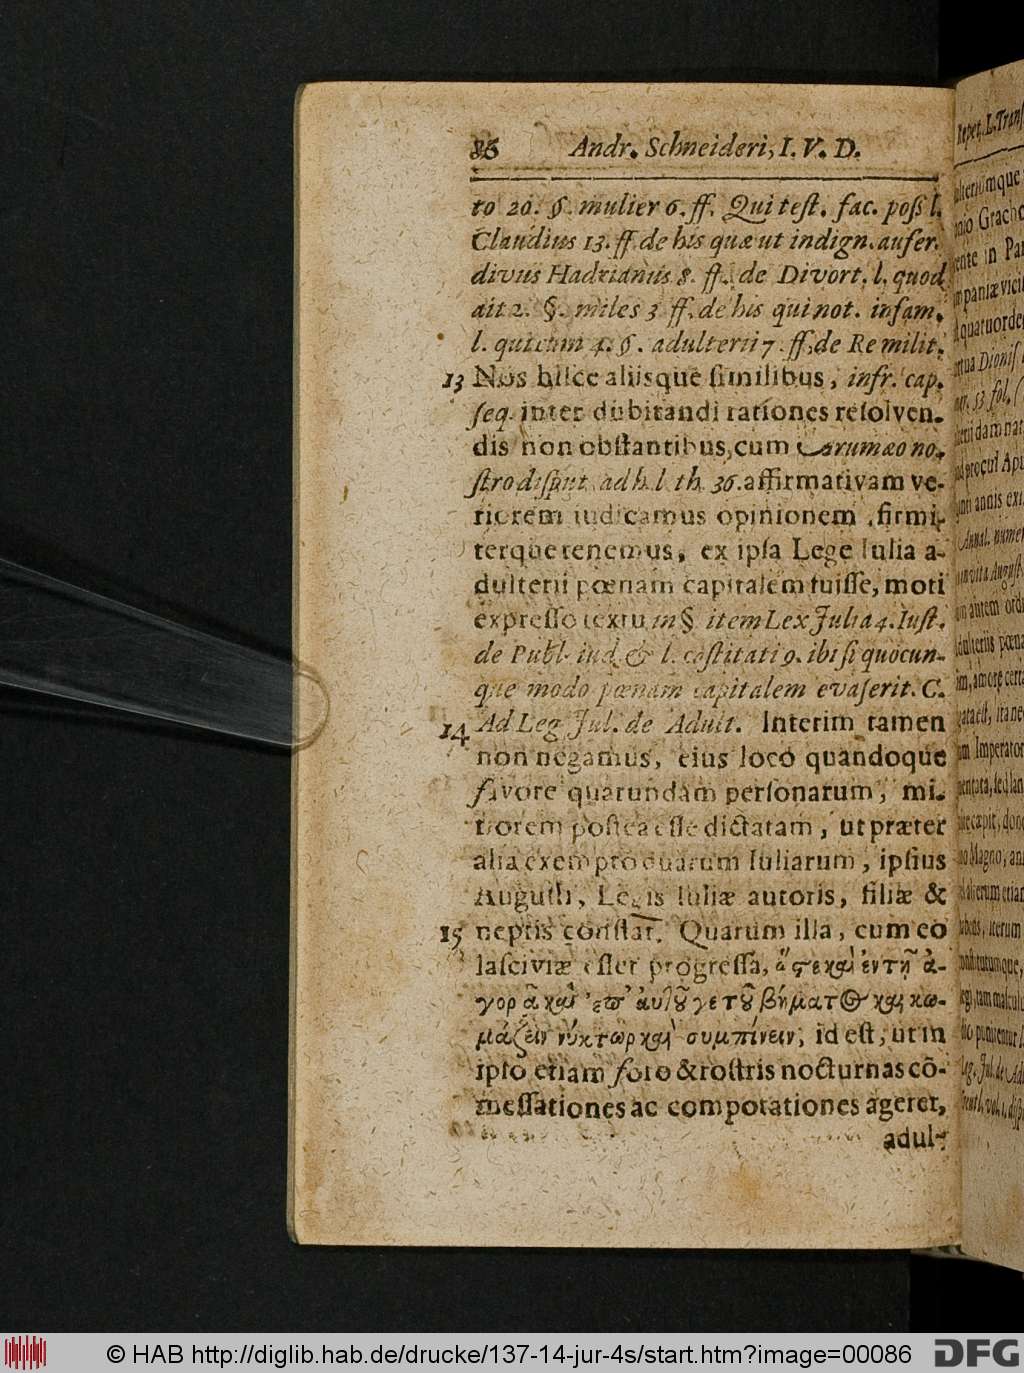 86 Andr. Schneideri, I. V. D.
to 20. §. mulier 6. ff. Qui test. fac. poss l.
Claudius 13. ff. de his quæ ut indign. aufer.
divus Hadrianus 8. ff. de Divort. l. quod
ait 2. §. miles 3 ff. de his qui not. infam.
l. quictum 4. §. adulterii 7. ff. de Re milit.
13 Nos hisce aliisque similibus, infr. cap.
seq. inter dubitandi rationes resolven-
dis non obstantibus, cum Carumæo no-
stro disput. ad h. l. th. 36. affirmativam ve-
riorem iudicamus opinionem, firmi-
terque tenemus, ex ipsa Lege Iulia a-
dulterii pœnam capitalem fuisse, moti
expresso textu in § item Lex Julia 4. Iust.
de Publ. iud. & l. castitati 9. ibi si quocun-
que modo pœnam capitalem evaserit. C.
14 Ad Leg Jul. de Adult. Interim tamen
non negamus, eius loco quandoque
favore quarundam personarum, mi-
tiorem postea esse dictatam, ut præter
alia exempro duarum Iuliarum, ipsius
Augusti, Legis Iuliæ autoris, filiæ &
15 neptis constat. Quarum illa, cum eo
lasciviæ esset progressa, ὥστε καὶ ἐν τῇ ἀ-
γορᾷ καὶ ἐπ' αὐτοῦ γε τοῦ βήματος καὶ κω-
μάζειν νύκτωρ καὶ συμπίνειν, id est, ut in
ipso etiam foro & rostris nocturnas cõ-
messationes ac compotationes ageret,
adul-
© HAB http://diglib.hab.de/drucke/137-14-jur-4s/start.htm?image=00086
DFG